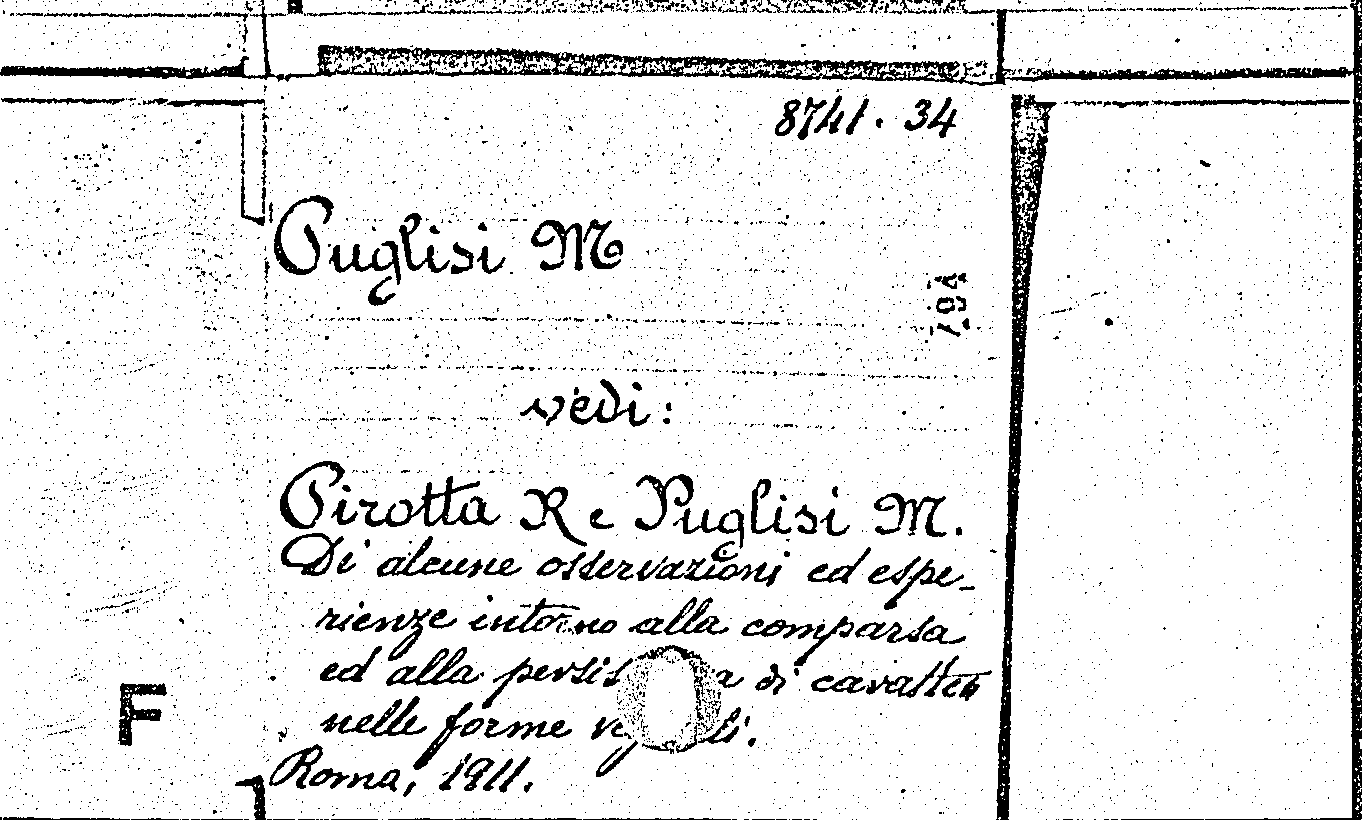 8741. 34
Puglisi M
794
vedi:
Pirotta R e Puglisi M.
Di alcune osservazioni ed espe-
rienze intorno alla comparsa
ed alla di caratteri
nelle forme
F
Roma, 1911.